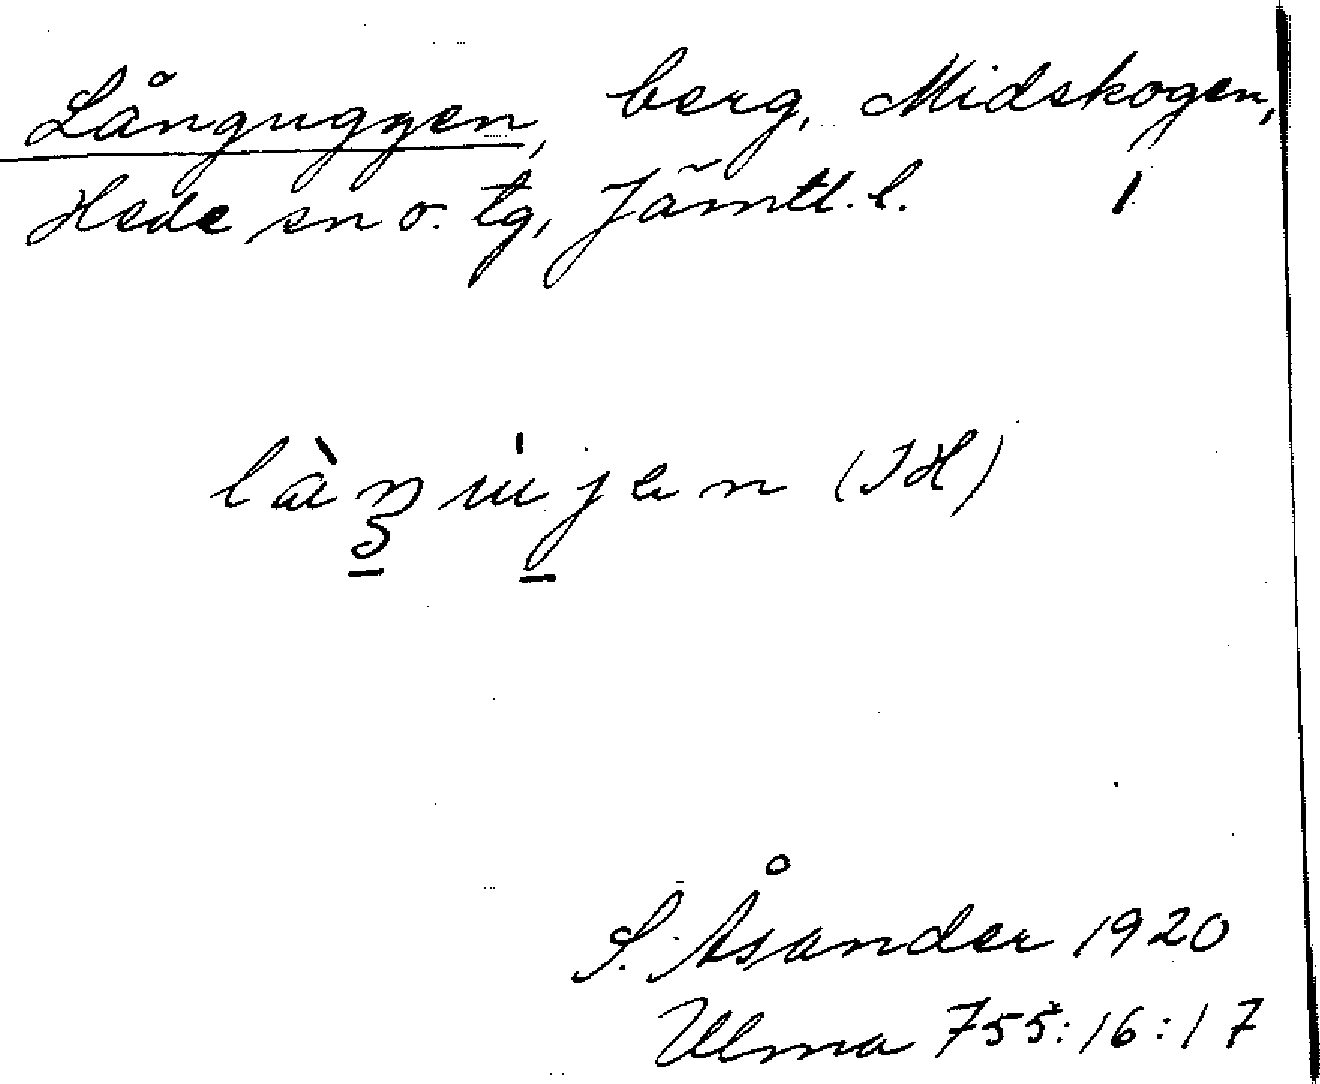 Långuggen, berg, Midskogen,
Hede sn o. tg, Jämtl. l. 1
(JH)
S. Åsander 1920
Ulma 755:16:17